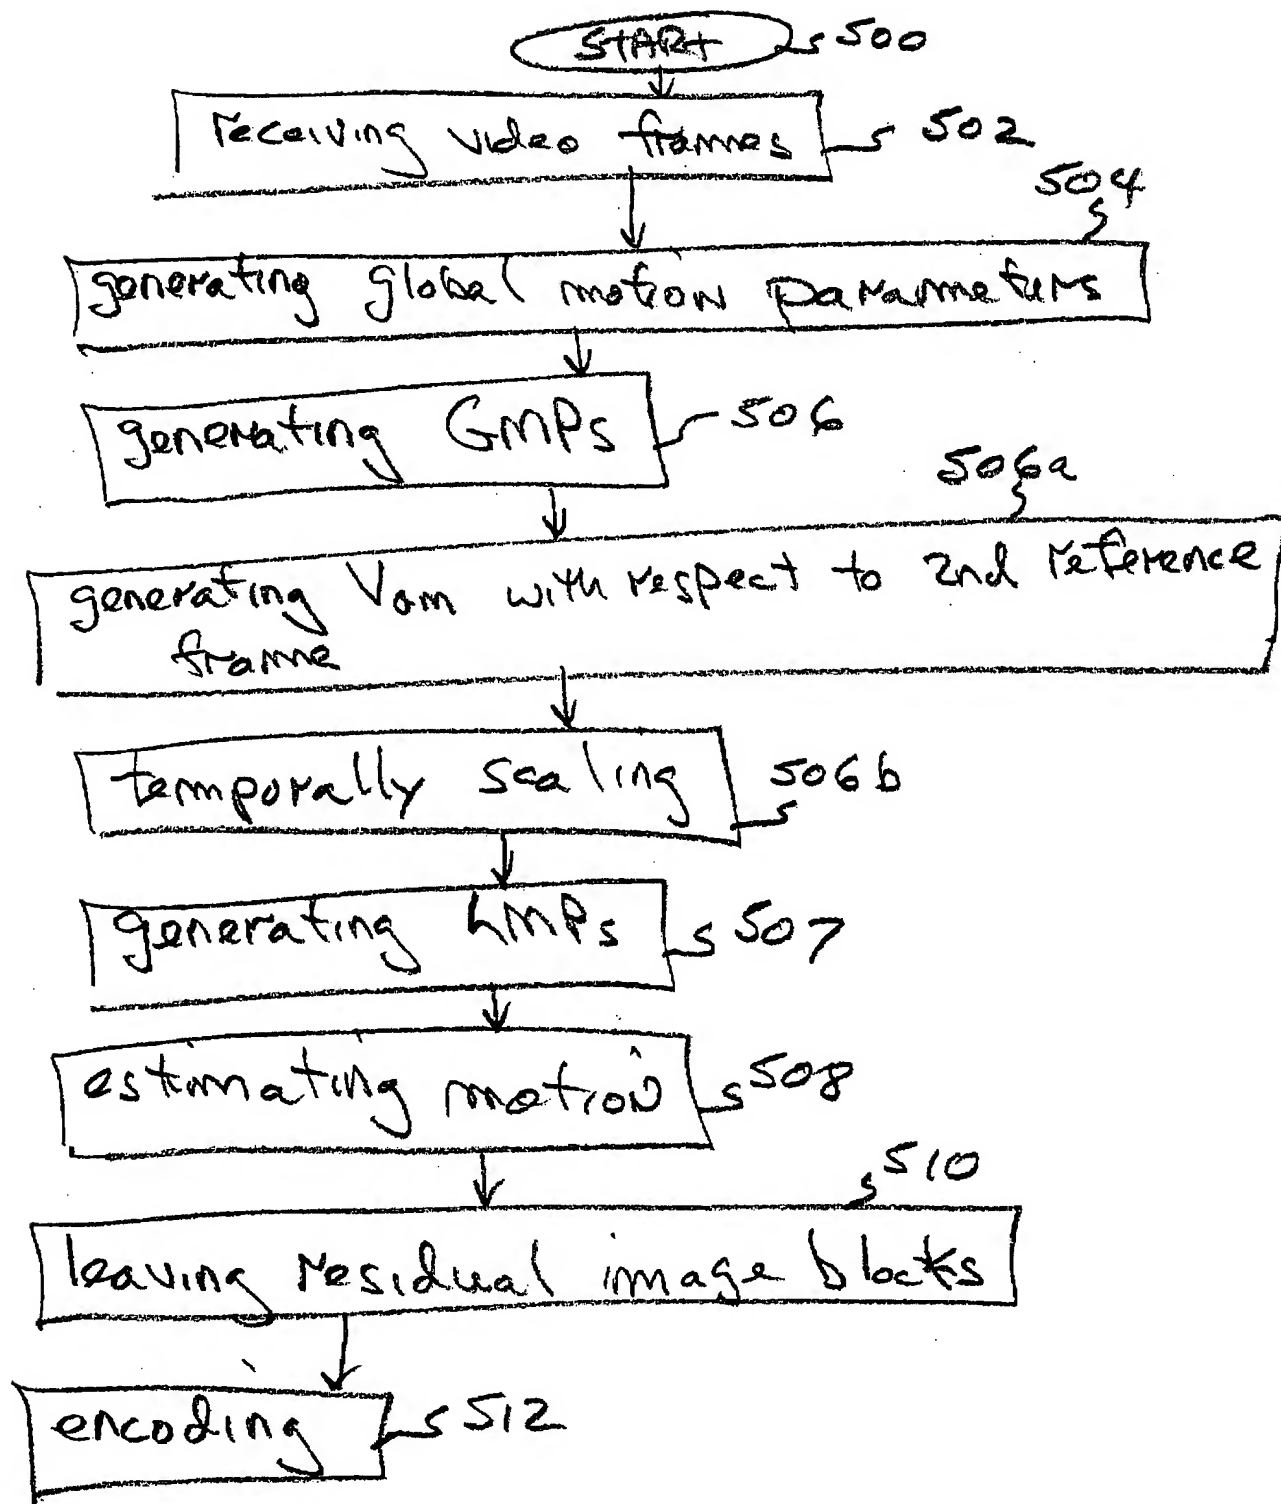 START 500
receiving video frames 502
504
generating global motion parameters
generating GMPs 506
506a
generating Vom with respect to 2nd reference
frame
temporally scaling 506b
generating LMPs 507
estimating motion 508
510
leaving residual image blocks
encoding 512